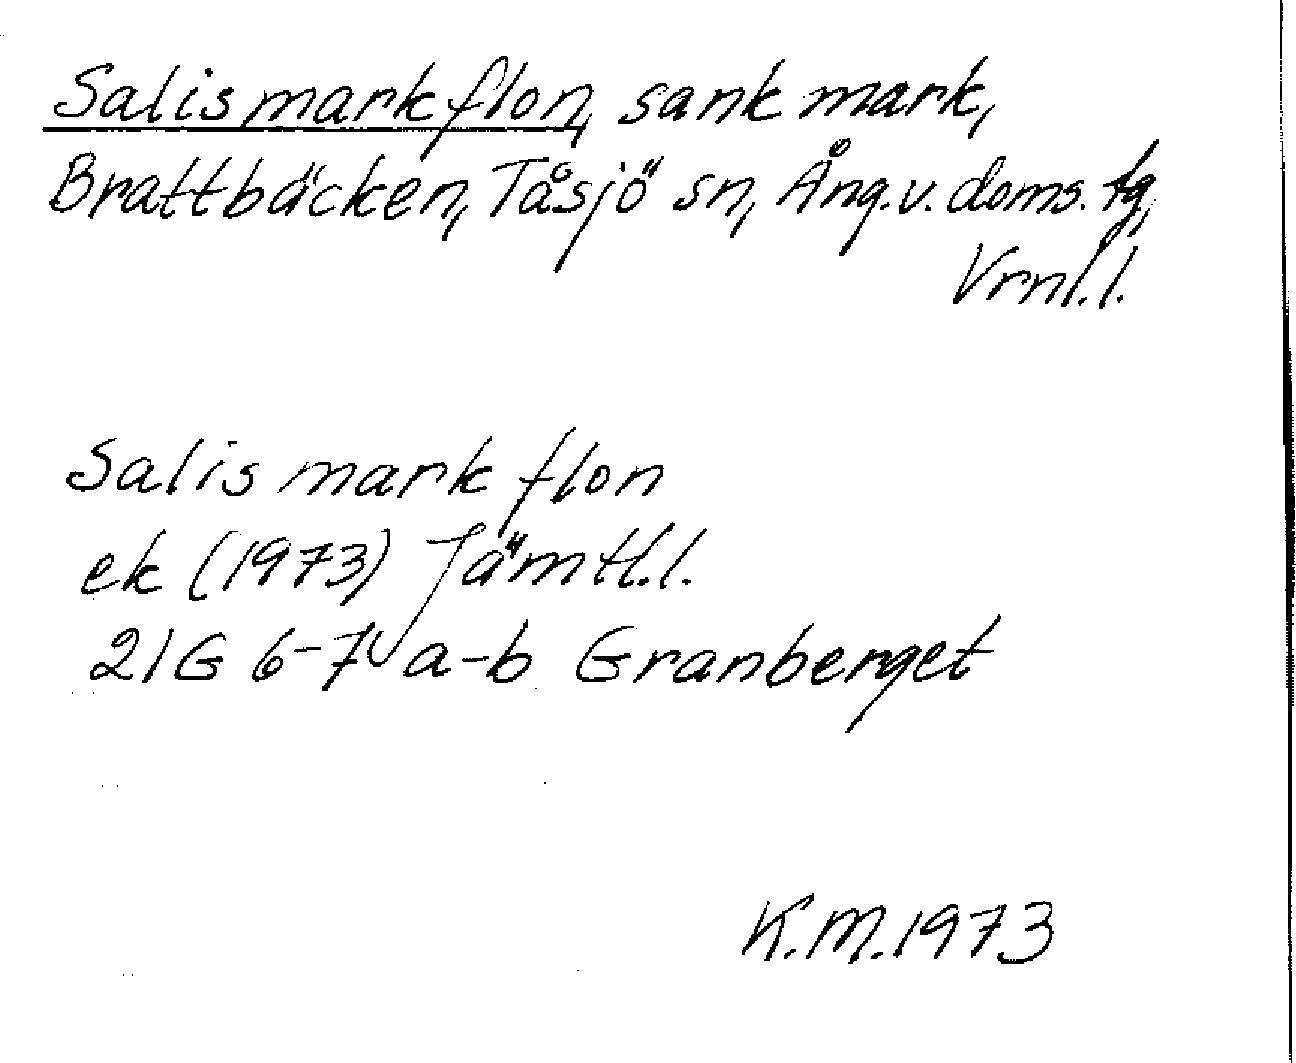 Salismarkflon, sank mark,
Brattbäcken, Tåsjö sn, Ång.v.doms.tg,
Vrnl.l.
Salismarkflon
ek (1973) Jämtl.l.
21G 6-7 a-b Granberget
K.M.1973